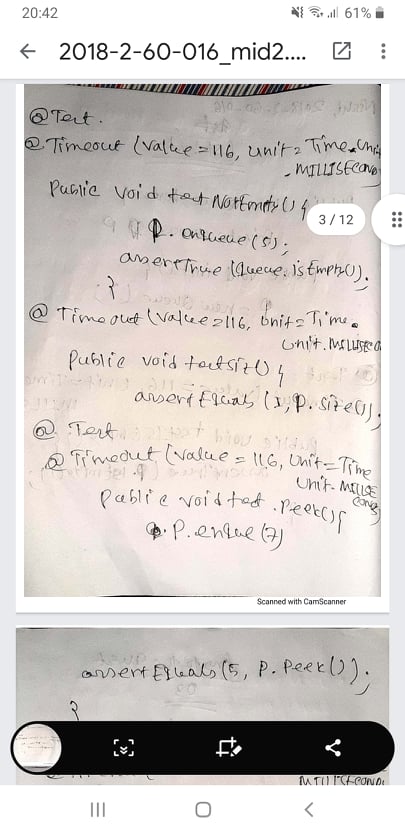 20:42 61%
2018-2-60-016_mid2....
@ Test.
@ Timeout (value = 116, unit = Time.Unit
. MILLISECOND
Public void test NotEmpty () {
3 / 12
P. enqueue (5);
assertTrue (Queue. isEmpty());
}
@ Timeout (value = 116, Unit = Time.
Unit. MILLISECO
Public void testsize() {
assert Equals (1, P. size());
@ Test
@ Timeout (value = 116, Unit = Time
Unit. MILLSE
COND
Public void test . Peek() {
P. enque (7)
Scanned with CamScanner
assert Equals (5, P. Peek());
}